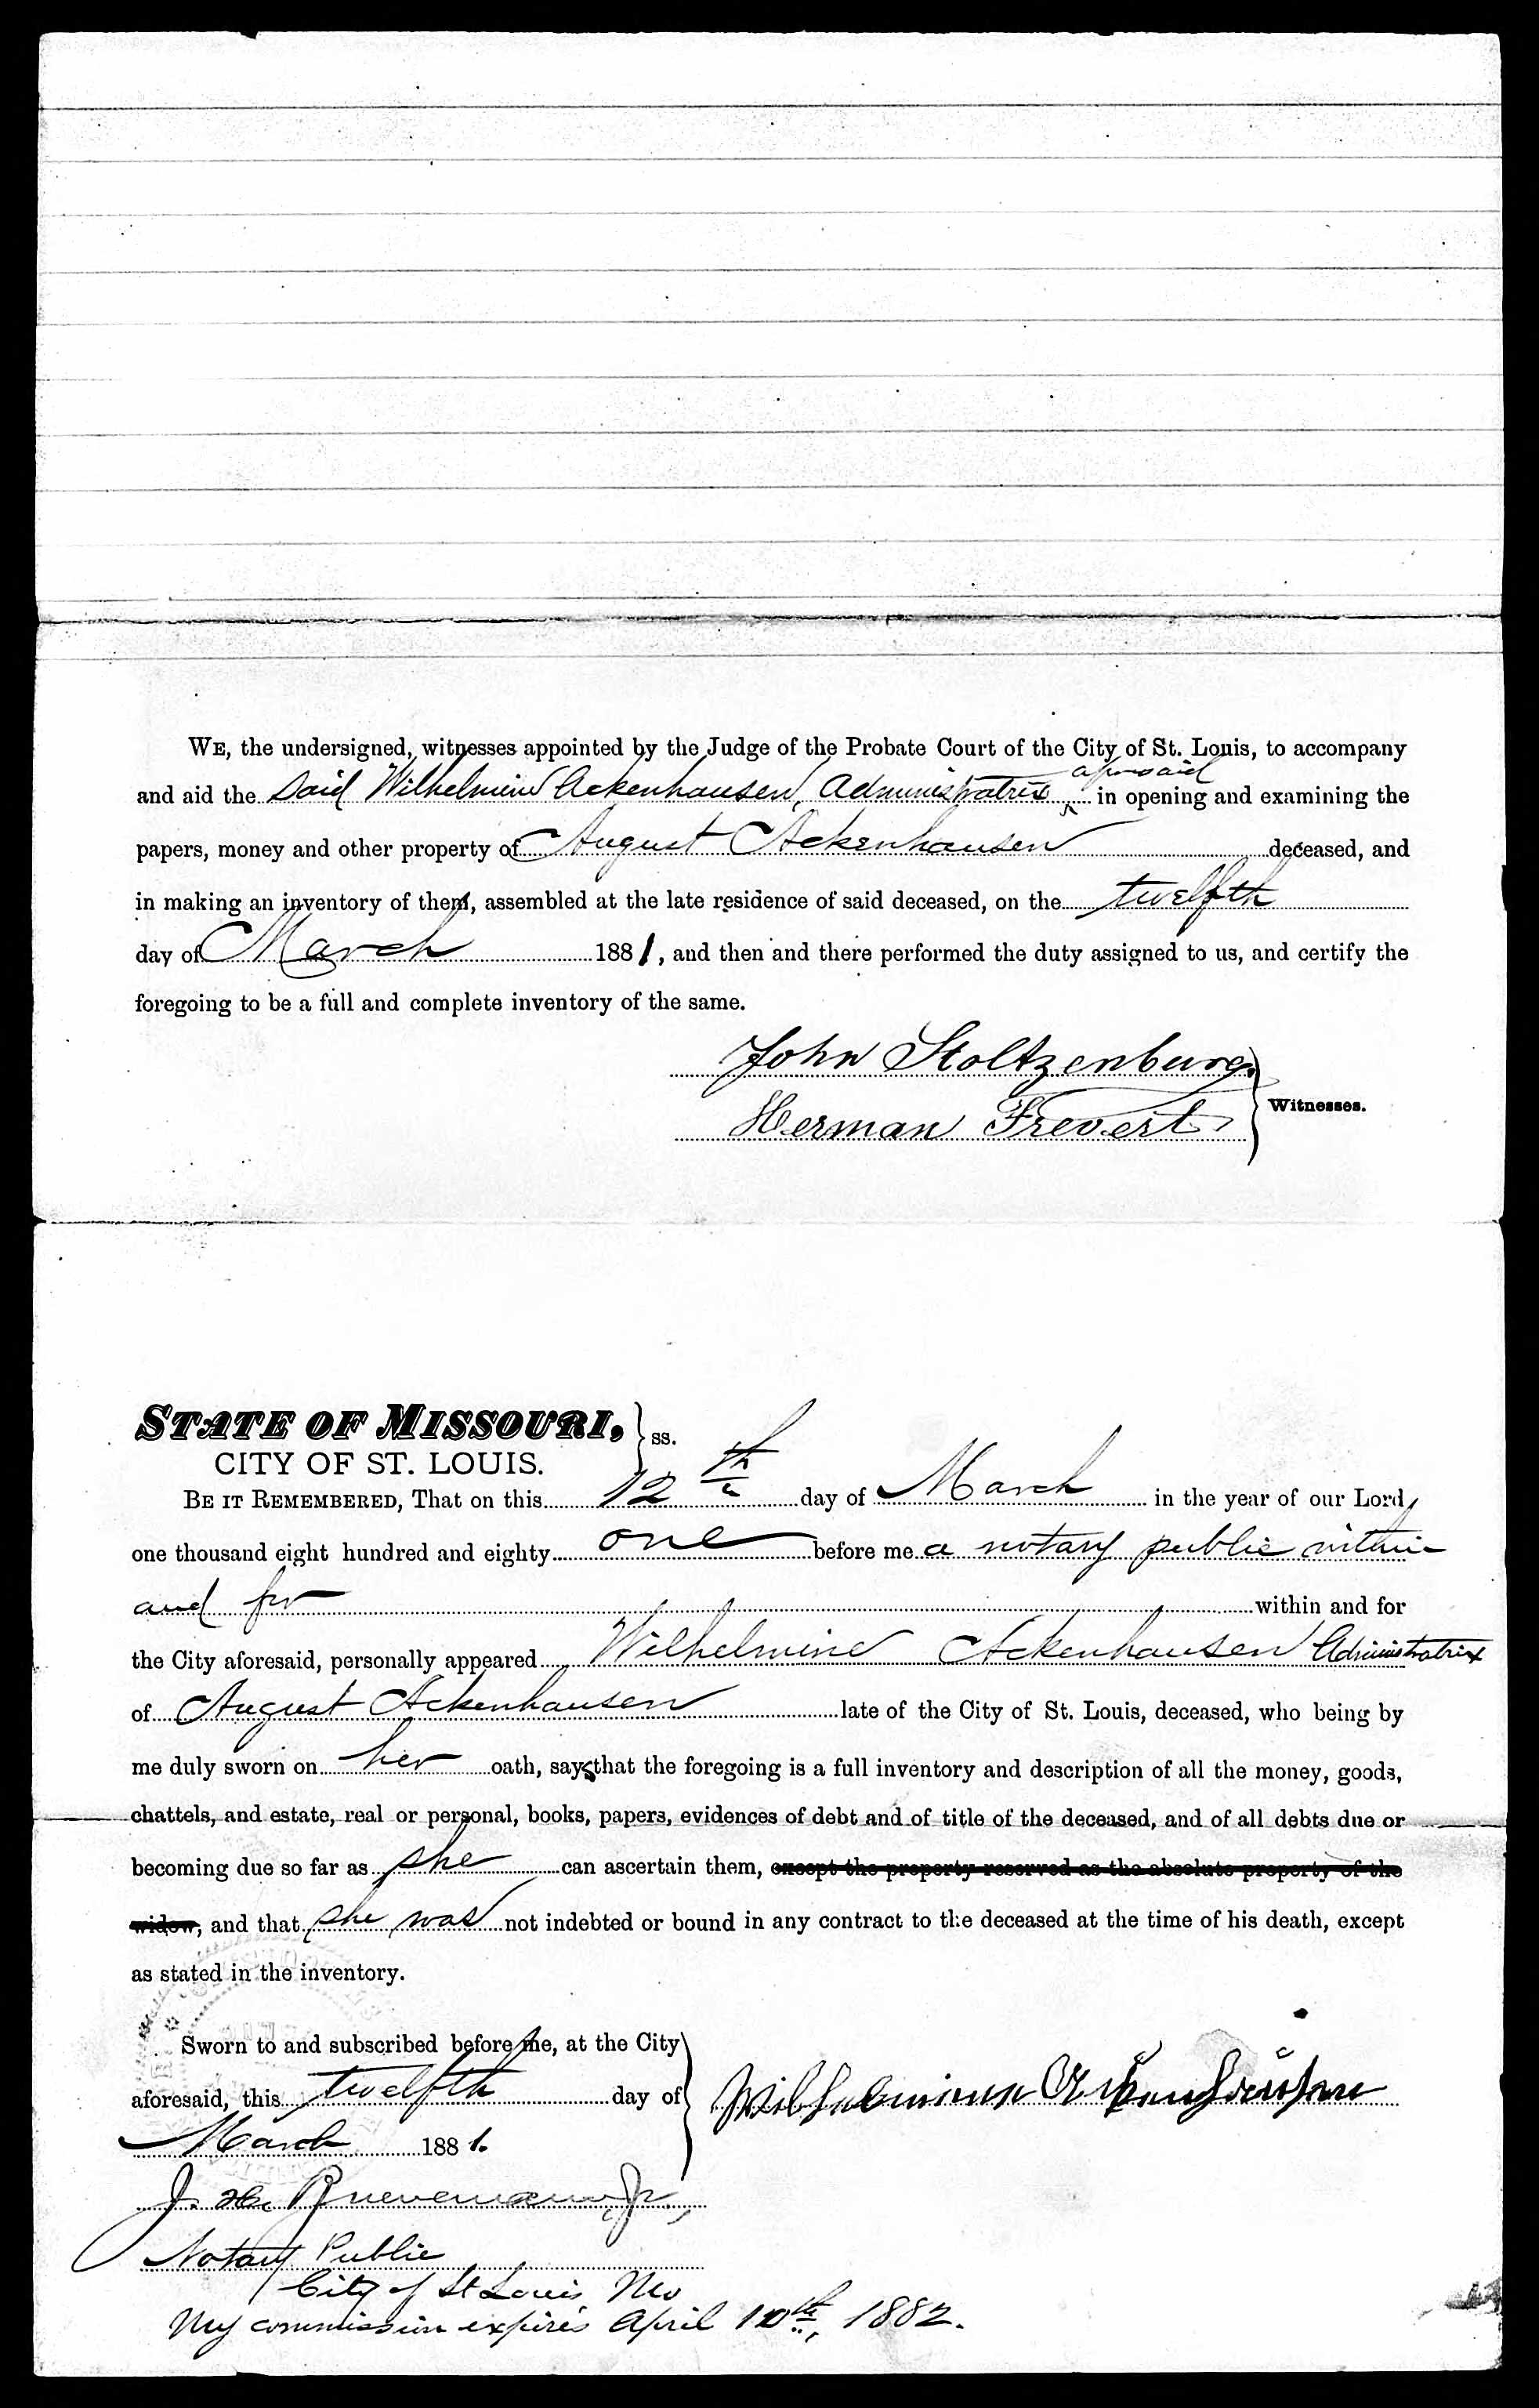 WE, the undersigned, witnesses appointed by the Judge of the Probate Court of the City of St. Louis, to accompany
aforesaid
and aid the said Wilhelmine Ackenhausen, Administratrix in opening and examining the
papers, money and other property of August Ackenhausen deceased, and
in making an inventory of them, assembled at the late residence of said deceased, on the twelfth
day of March 1881, and then and there performed the duty assigned to us, and certify the
foregoing to be a full and complete inventory of the same.
John Stoltzenburg
Herman Frevert
Witnesses.
STATE OF MISSOURI, } ss.
CITY OF ST. LOUIS.
BE IT REMEMBERED, That on this 12th day of March in the year of our Lord
one thousand eight hundred and eighty one before me a notary public within
and for within and for
the City aforesaid, personally appeared Wilhelmine Ackenhausen Administratrix
of August Ackenhausen late of the City of St. Louis, deceased, who being by
me duly sworn on her oath, says that the foregoing is a full inventory and description of all the money, goods,
chattels, and estate, real or personal, books, papers, evidences of debt and of title of the deceased, and of all debts due or
becoming due so far as she can ascertain them, except the property reserved as the absolute property of the
widow, and that she was not indebted or bound in any contract to the deceased at the time of his death, except
as stated in the inventory.
Sworn to and subscribed before me, at the City
aforesaid, this twelfth day of
March 1881.
Wilhelmine Ackenhausen
J. H.
Jr.,
Notary Public
City of St Louis Mo
My commission expires April 10th, 1882.